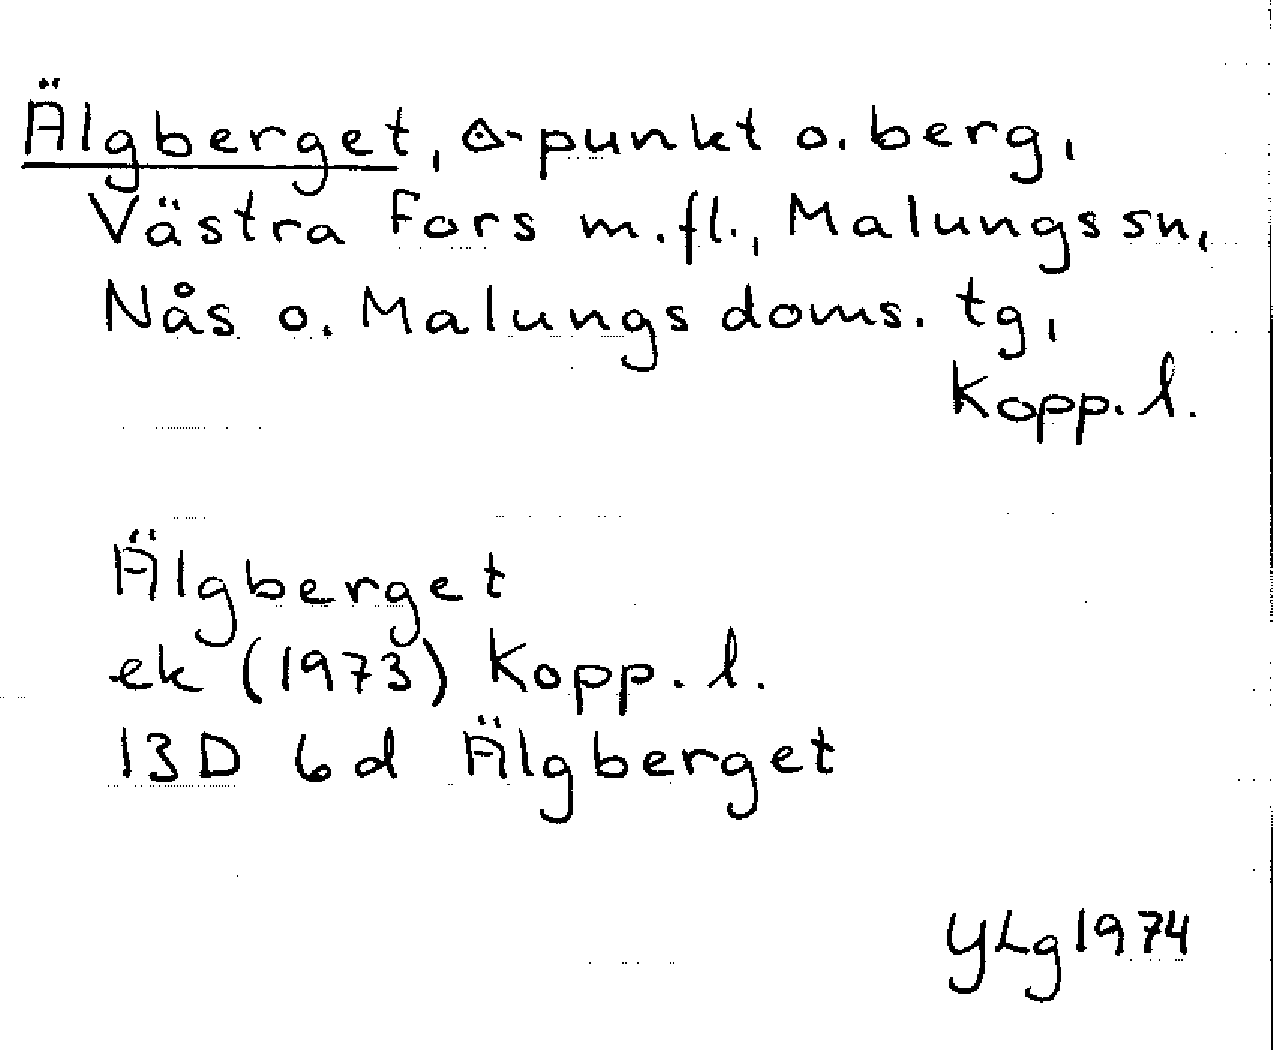 Älgberget, ◬-punkt o. berg,
Västra Fors m.fl., Malungs sn,
Nås o. Malungs doms. tg,
Kopp. l.
Älgberget
ek (1973) Kopp. l.
13D 6d Älgberget
YLg 1974